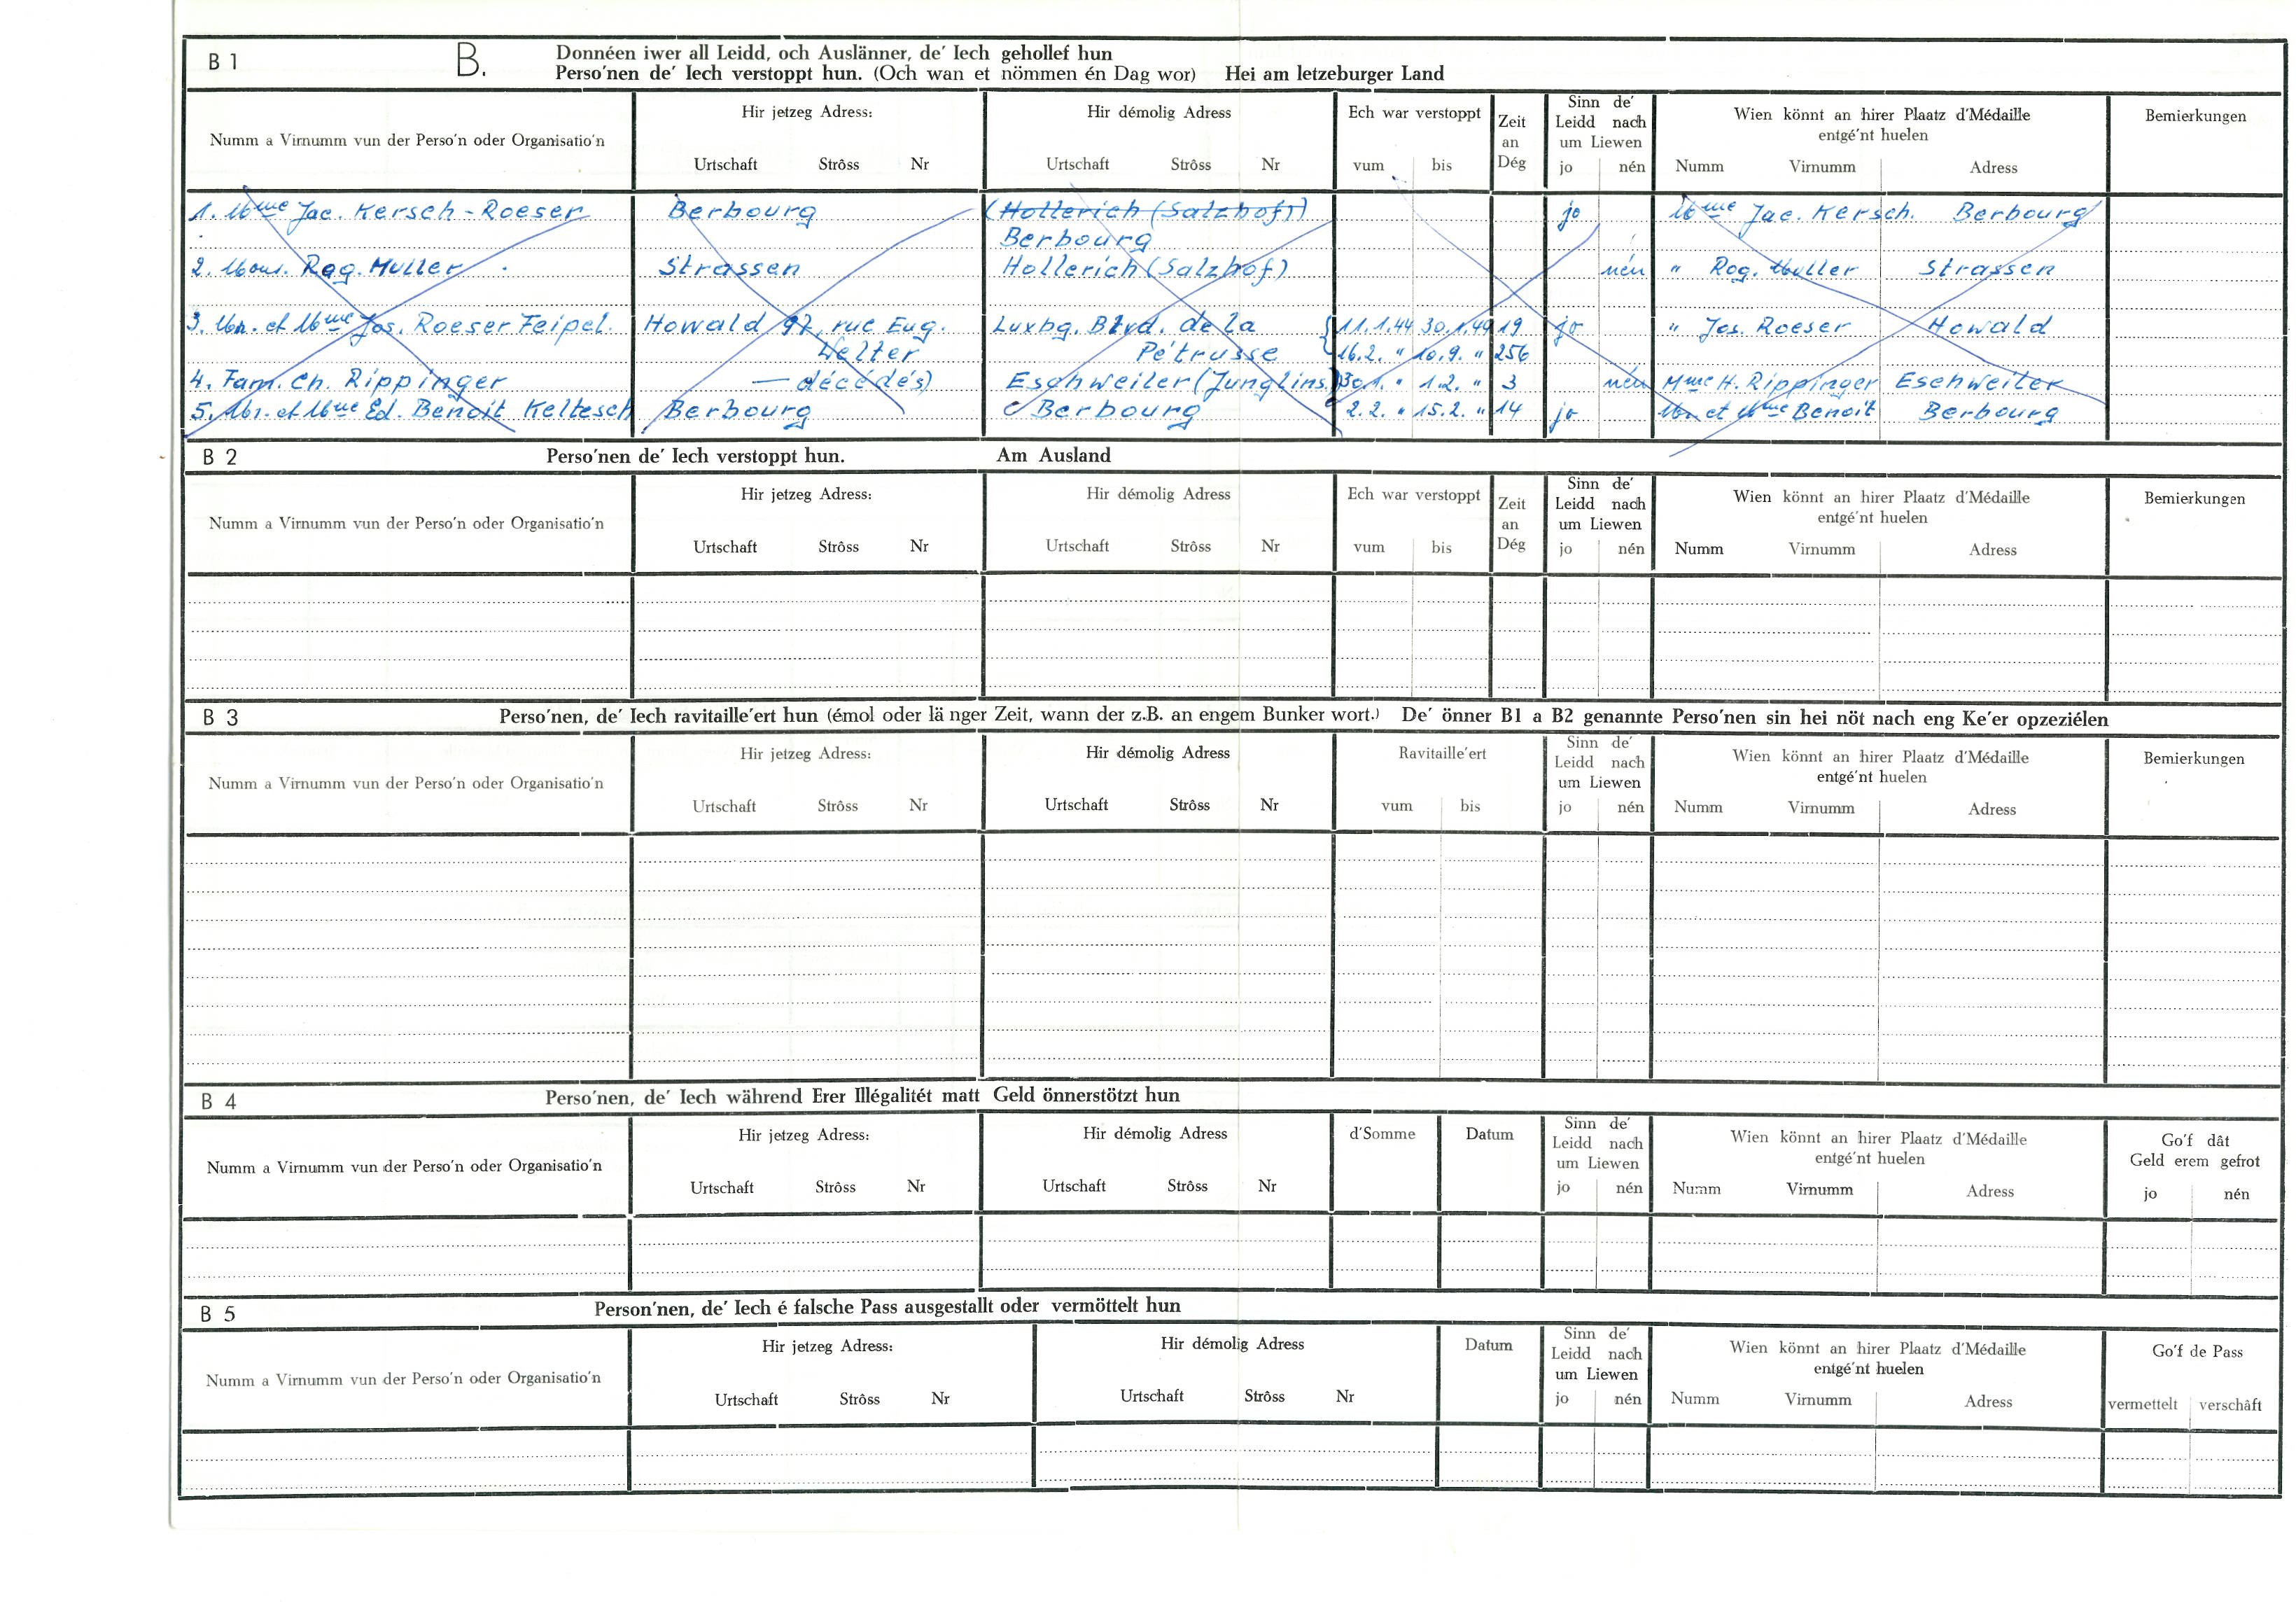 B 1 B. Donnéen iwer all Leidd, och Auslänner, de' Iech gehollef hun
Perso'nen de' Iech verstoppt hun. (Och wan et nömmen én Dag wor) Hei am letzeburger Land
Numm a Virnumm vun der Perso'n oder Organisatio'n Hir jetzeg Adress: Urtschaft Strôss Nr Hir démolig Adress Urtschaft Strôss Nr Ech war verstoppt vum bis Zeit an Dég Sinn de' Leidd nach um Liewen jo nén Wien könnt an hirer Plaatz d'Médaille entgé'nt huelen Numm Virnumm Adress Bemierkungen
1. Mme Jac. Kersch-Roeser Berbourg (Hollerich (Salzhof)) jo Mme Jac. Kersch. Berbourg
Berbourg
2. Mons. Rog. Muller Strassen Hollerich (Salzhof) nén " Rog. Muller Strassen
3. Mr. et Mme Jos. Roeser Feipel. Howald 97, rue Eug. Luxbg. Blvd. de la 11.1.44 30.1.44 19 jo " Jos. Roeser Howald
Welter Pétrusse 16.2. " 10.9. " 256
4. Fam. Ch. Rippinger — décédés) Eschweiler (Junglins.) 30.1. " 1.2. " 3 nén Mme H. Rippinger Eschweiler
5. Mr. et Mme Ed. Benoit Keltesch Berbourg Berbourg 2.2. " 15.2. " 14 jo Mr et Mme Benoit Berbourg
B 2 Perso'nen de' Iech verstoppt hun. Am Ausland
Numm a Virnumm vun der Perso'n oder Organisatio'n Hir jetzeg Adress: Urtschaft Strôss Nr Hir démolig Adress Urtschaft Strôss Nr Ech war verstoppt vum bis Zeit an Dég Sinn de' Leidd nach um Liewen jo nén Wien könnt an hirer Plaatz d'Médaille entgé'nt huelen Numm Virnumm Adress Bemierkungen
B 3 Perso'nen, de' Iech ravitaille'ert hun (émol oder lä nger Zeit, wann der z.B. an engem Bunker wort.) De' önner B1 a B2 genannte Perso'nen sin hei nöt nach eng Ke'er opzeziélen
Numm a Virnumm vun der Perso'n oder Organisatio'n Hir jetzeg Adress: Urtschaft Strôss Nr Hir démolig Adress Urtschaft Strôss Nr Ravitaille'ert vum bis Sinn de' Leidd nach um Liewen jo nén Wien könnt an hirer Plaatz d'Médaille entgé'nt huelen Numm Virnumm Adress Bemierkungen
B 4 Perso'nen, de' Iech während Erer Illégalitét matt Geld önnerstötzt hun
Numm a Virnumm vun der Perso'n oder Organisatio'n Hir jetzeg Adress: Urtschaft Strôss Nr Hir démolig Adress Urtschaft Strôss Nr d'Somme Datum Sinn de' Leidd nach um Liewen jo nén Wien könnt an hirer Plaatz d'Médaille entgé'nt huelen Numm Virnumm Adress Go'f dât Geld erem gefrot jo nén
B 5 Person'nen, de' Iech é falsche Pass ausgestallt oder vermöttelt hun
Numm a Virnumm vun der Perso'n oder Organisatio'n Hir jetzeg Adress: Urtschaft Strôss Nr Hir démolig Adress Urtschaft Strôss Nr Datum Sinn de' Leidd nach um Liewen jo nén Wien könnt an hirer Plaatz d'Médaille entgé'nt huelen Numm Virnumm Adress Go'f de Pass vermettelt verschâft